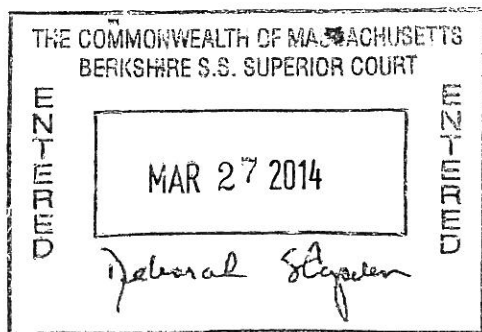 THE COMMONWEALTH OF MASSACHUSETTS
BERKSHIRE S.S. SUPERIOR COURT
ENTERED
MAR 27 2014
ENTERED
Deborah S.